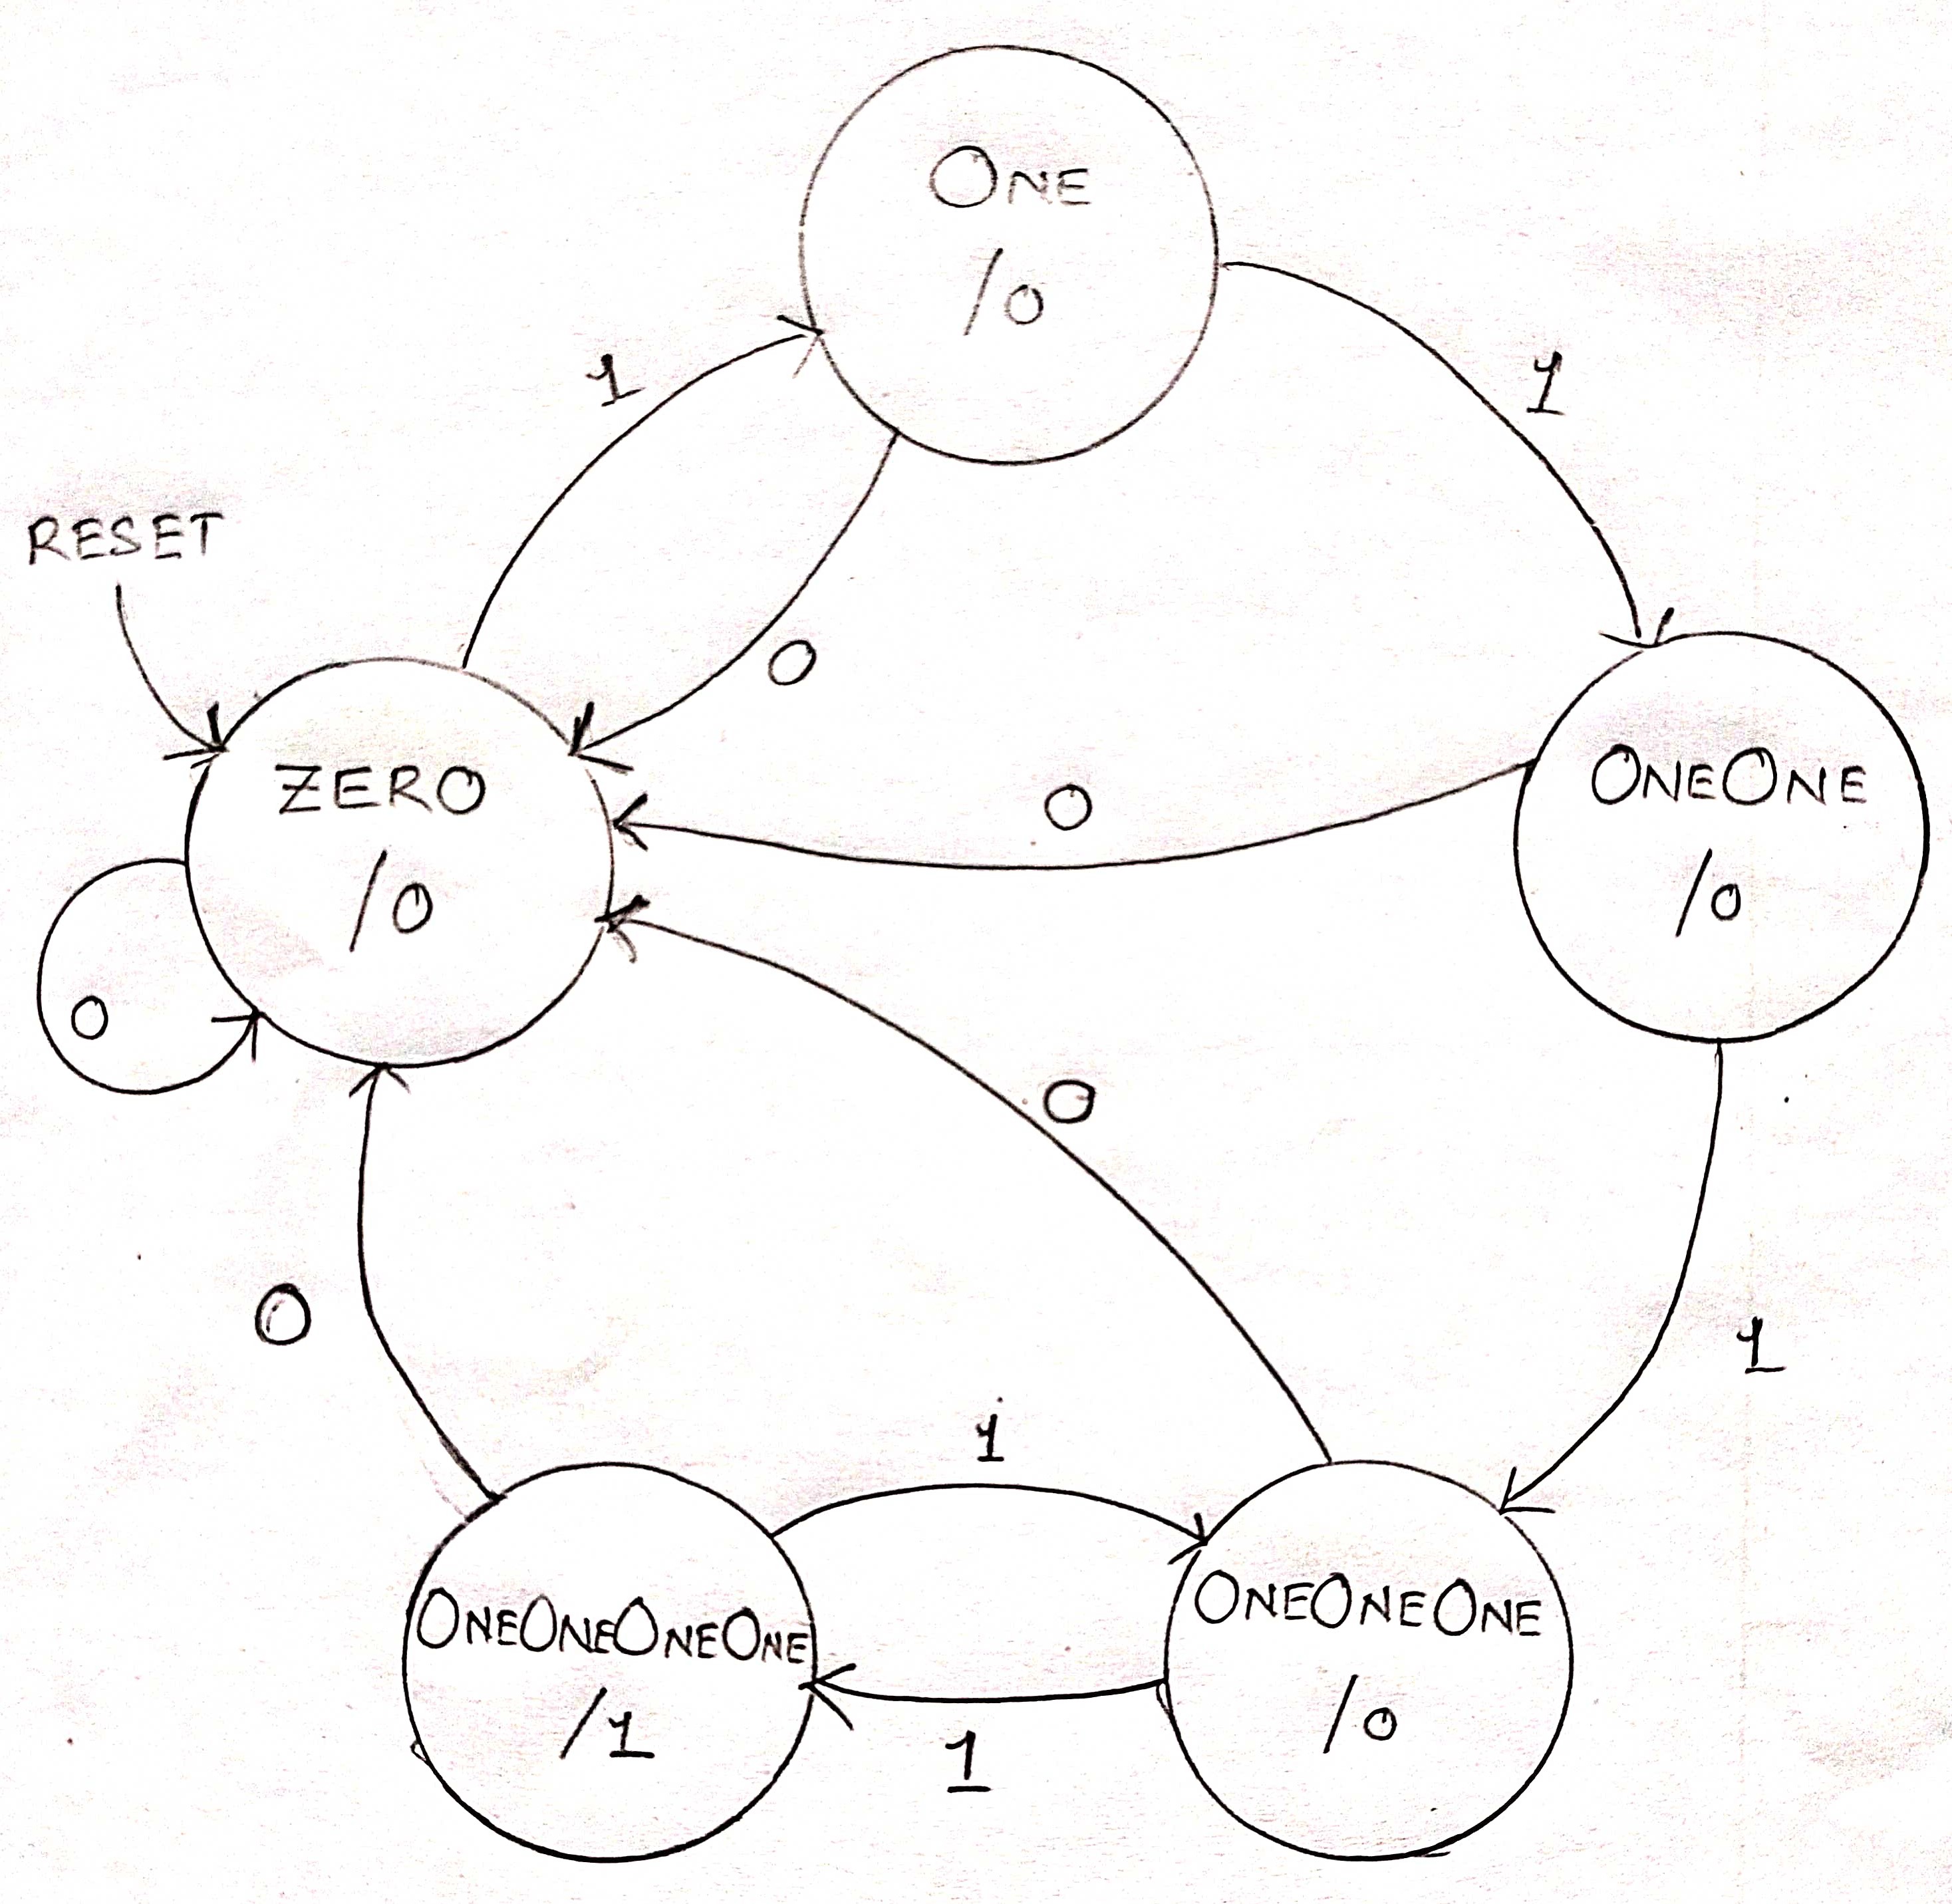 One
/0
1
1
RESET
0
ZERO
/0
0
OneOne
/0
0
0
0
1
1
OneOneOneOne
/1
OneOneOne
/0
1